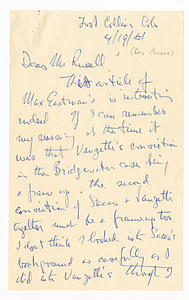 Fort Collins Colo
4/19/61
Dear Mr. Russell
That article of
Max Eastman's is interesting
indeed. If I can remember
my reasoning at the time it
was that Vanzetti's conviction
in the Bridgewater case being
a frame up - the second
conviction of Sacco & Vanzetti
together must be a frame up too
I dont think I looked into Sacco's
background as carefully as I
did into Vanzetti's